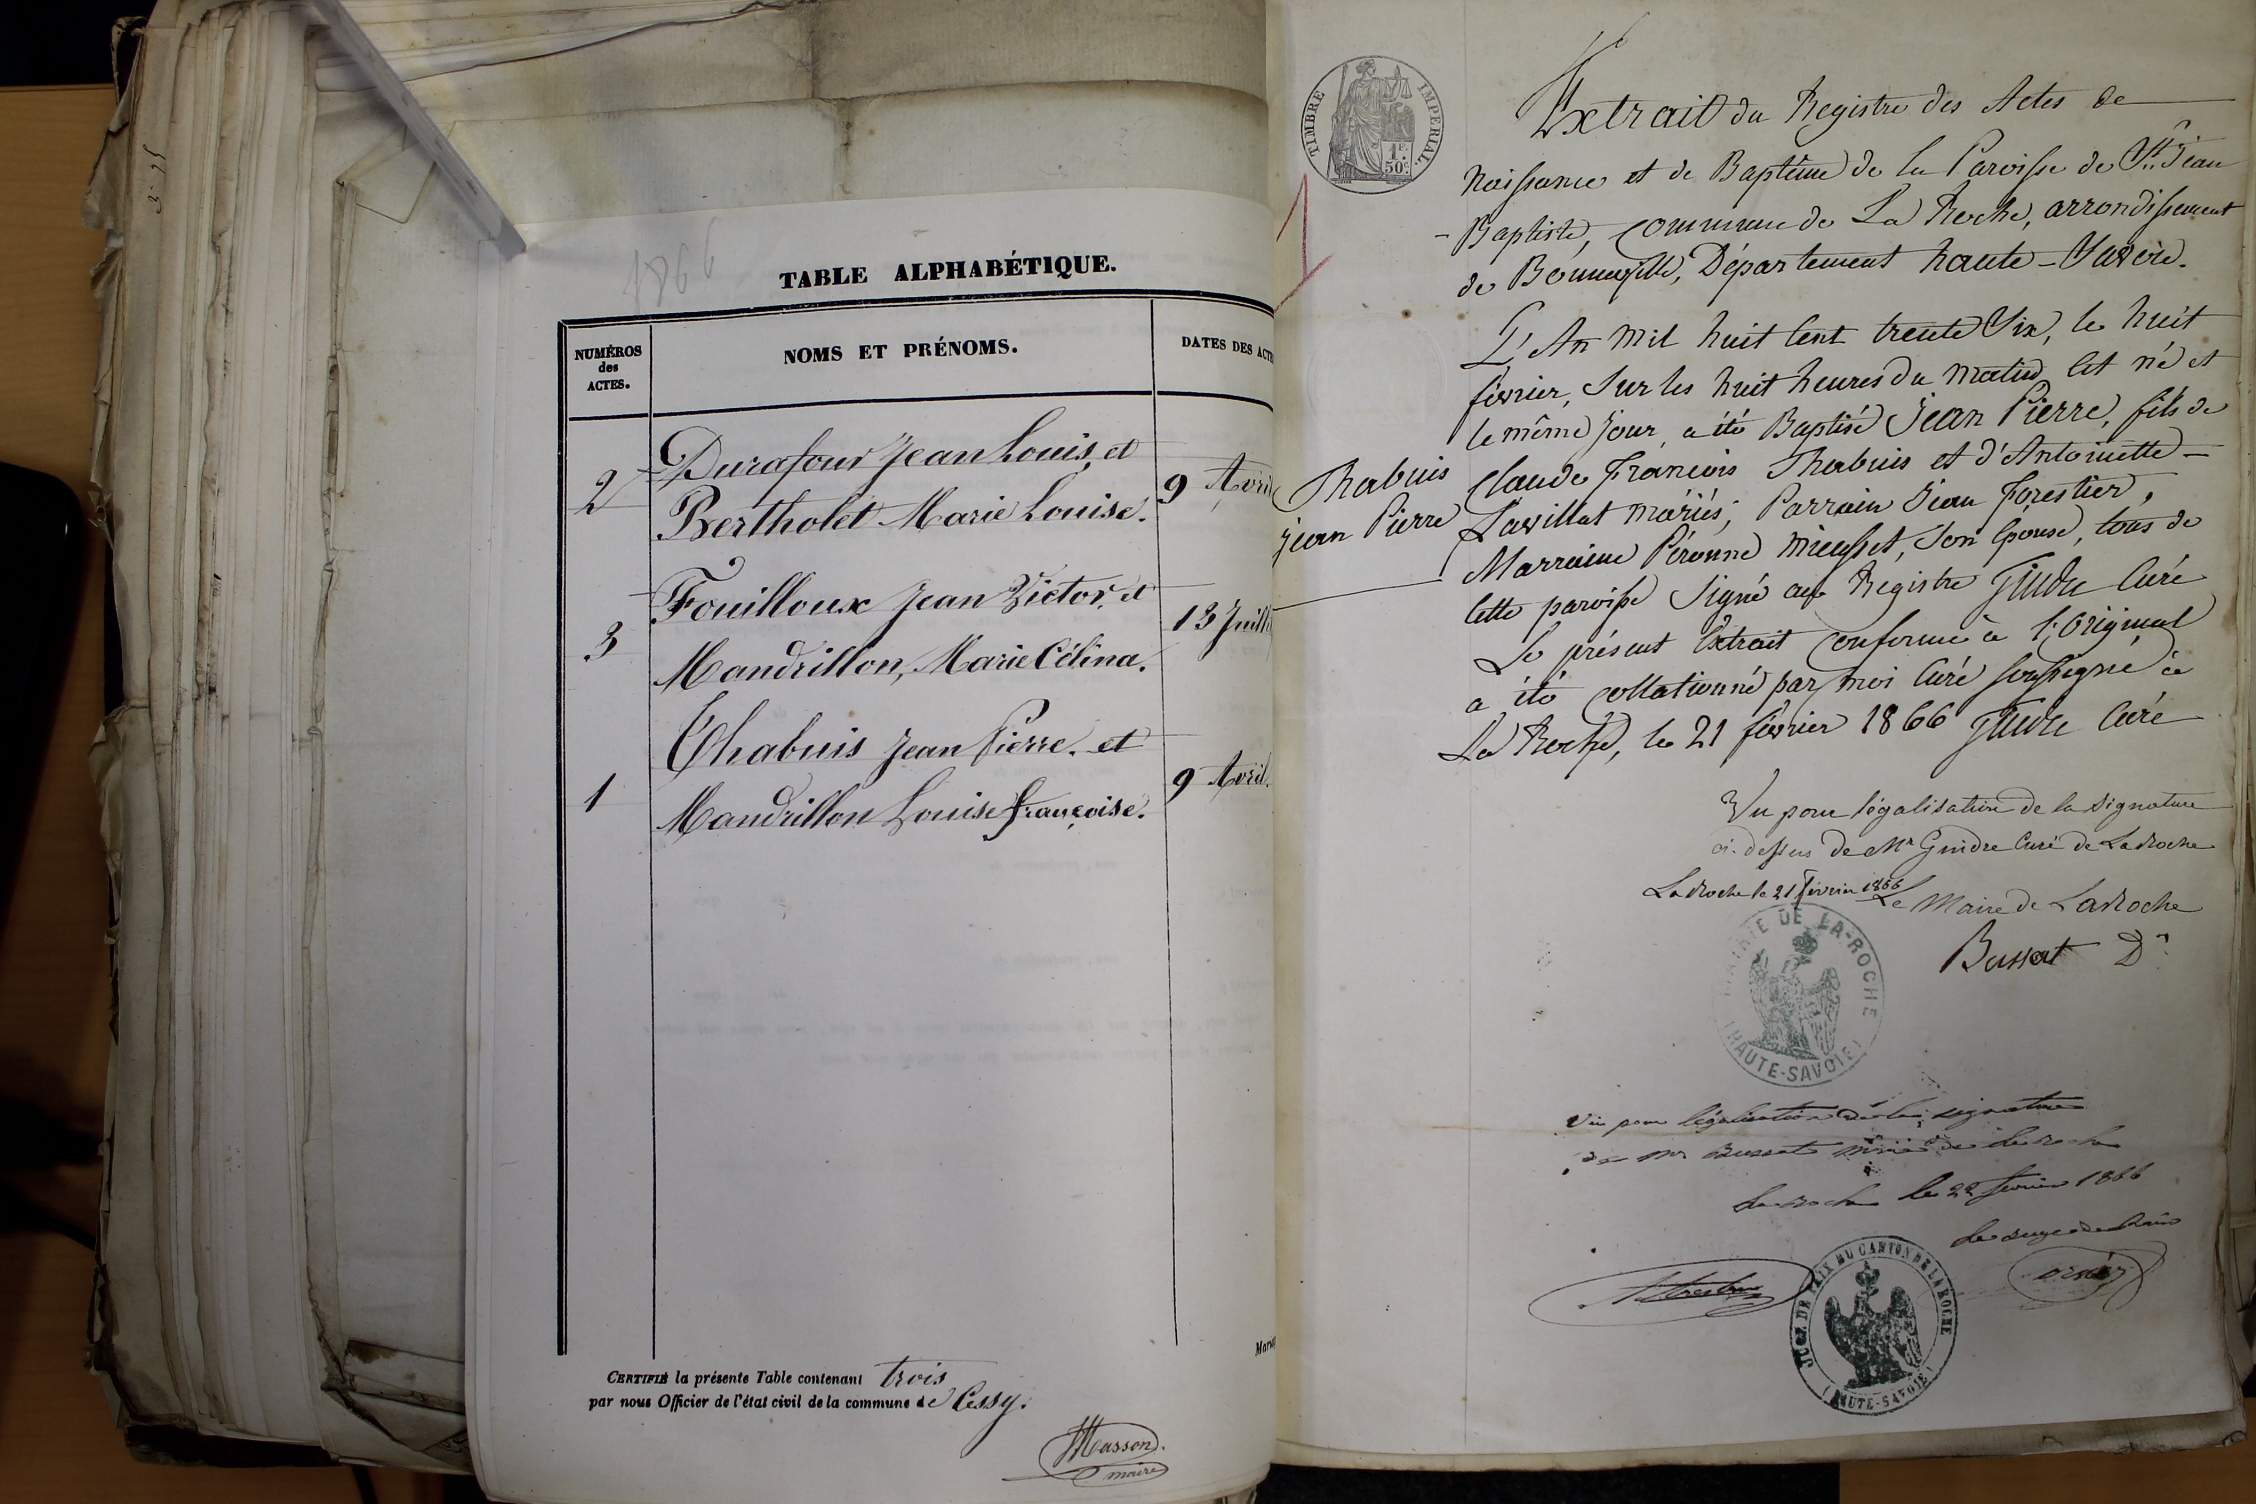 1866
TABLE ALPHABÉTIQUE.
NUMÉROS
des
ACTES.
NOMS ET PRÉNOMS.
DATES DES ACTE
2
Durafour Jean Louis, et
Bertholet Marie Louise.
9 Avril
3
Fouilloux Jean Victor, et
Mandrillon, Marie Célina.
13 Juill
1
Thabuis Jean Pierre. et
Mandrillon Louise françoise.
9 Avril.
CERTIFIÉ la présente Table contenant trois
par nous Officier de l'état civil de la commune de Cessy.
Masson.
maire
TIMBRE IMPERIAL.
1F.
50c.
Extrait du Registre des Actes de
Naissance et de Baptême de la Paroisse de St. Jean
Baptiste, commune de La Roche, arrondissement
de Bonneville, Département haute-Savoie.
L'An mil huit Cent trente Six, le huit
février, Sur les huit heures du matin Est né et
le même jour, a été Baptisé Jean Pierre, fils de
Thabuis
Jean Pierre
Claude François Thabuis et d'Antoinette
Lavillat mariés; Parrain Jean Forestier,
Marraine Péronne Mieusset, Son épouse, tous de
cette paroisse Signé au Registre Gindre Curé
Le présent Extrait conforme à l'Original
a été collationné par moi Curé soussigné à
La Roche, le 21 février 1866 Gindre Curé
Vu pour légalisation de la signature
ci-dessus de Mr Gindre Curé de La Roche
La Roche le 21 février 1866
Le Maire de La Roche
Bussat Dr
MAIRIE DE LA-ROCHE
(HAUTE-SAVOIE)
Vu pour légalisation de la signature
de Mr Bussat maire de la roche
La roche le 22 février 1866
Le Juge de Paix
JUGE DE PAIX DU CANTON DE LA ROCHE
(HAUTE-SAVOIE)